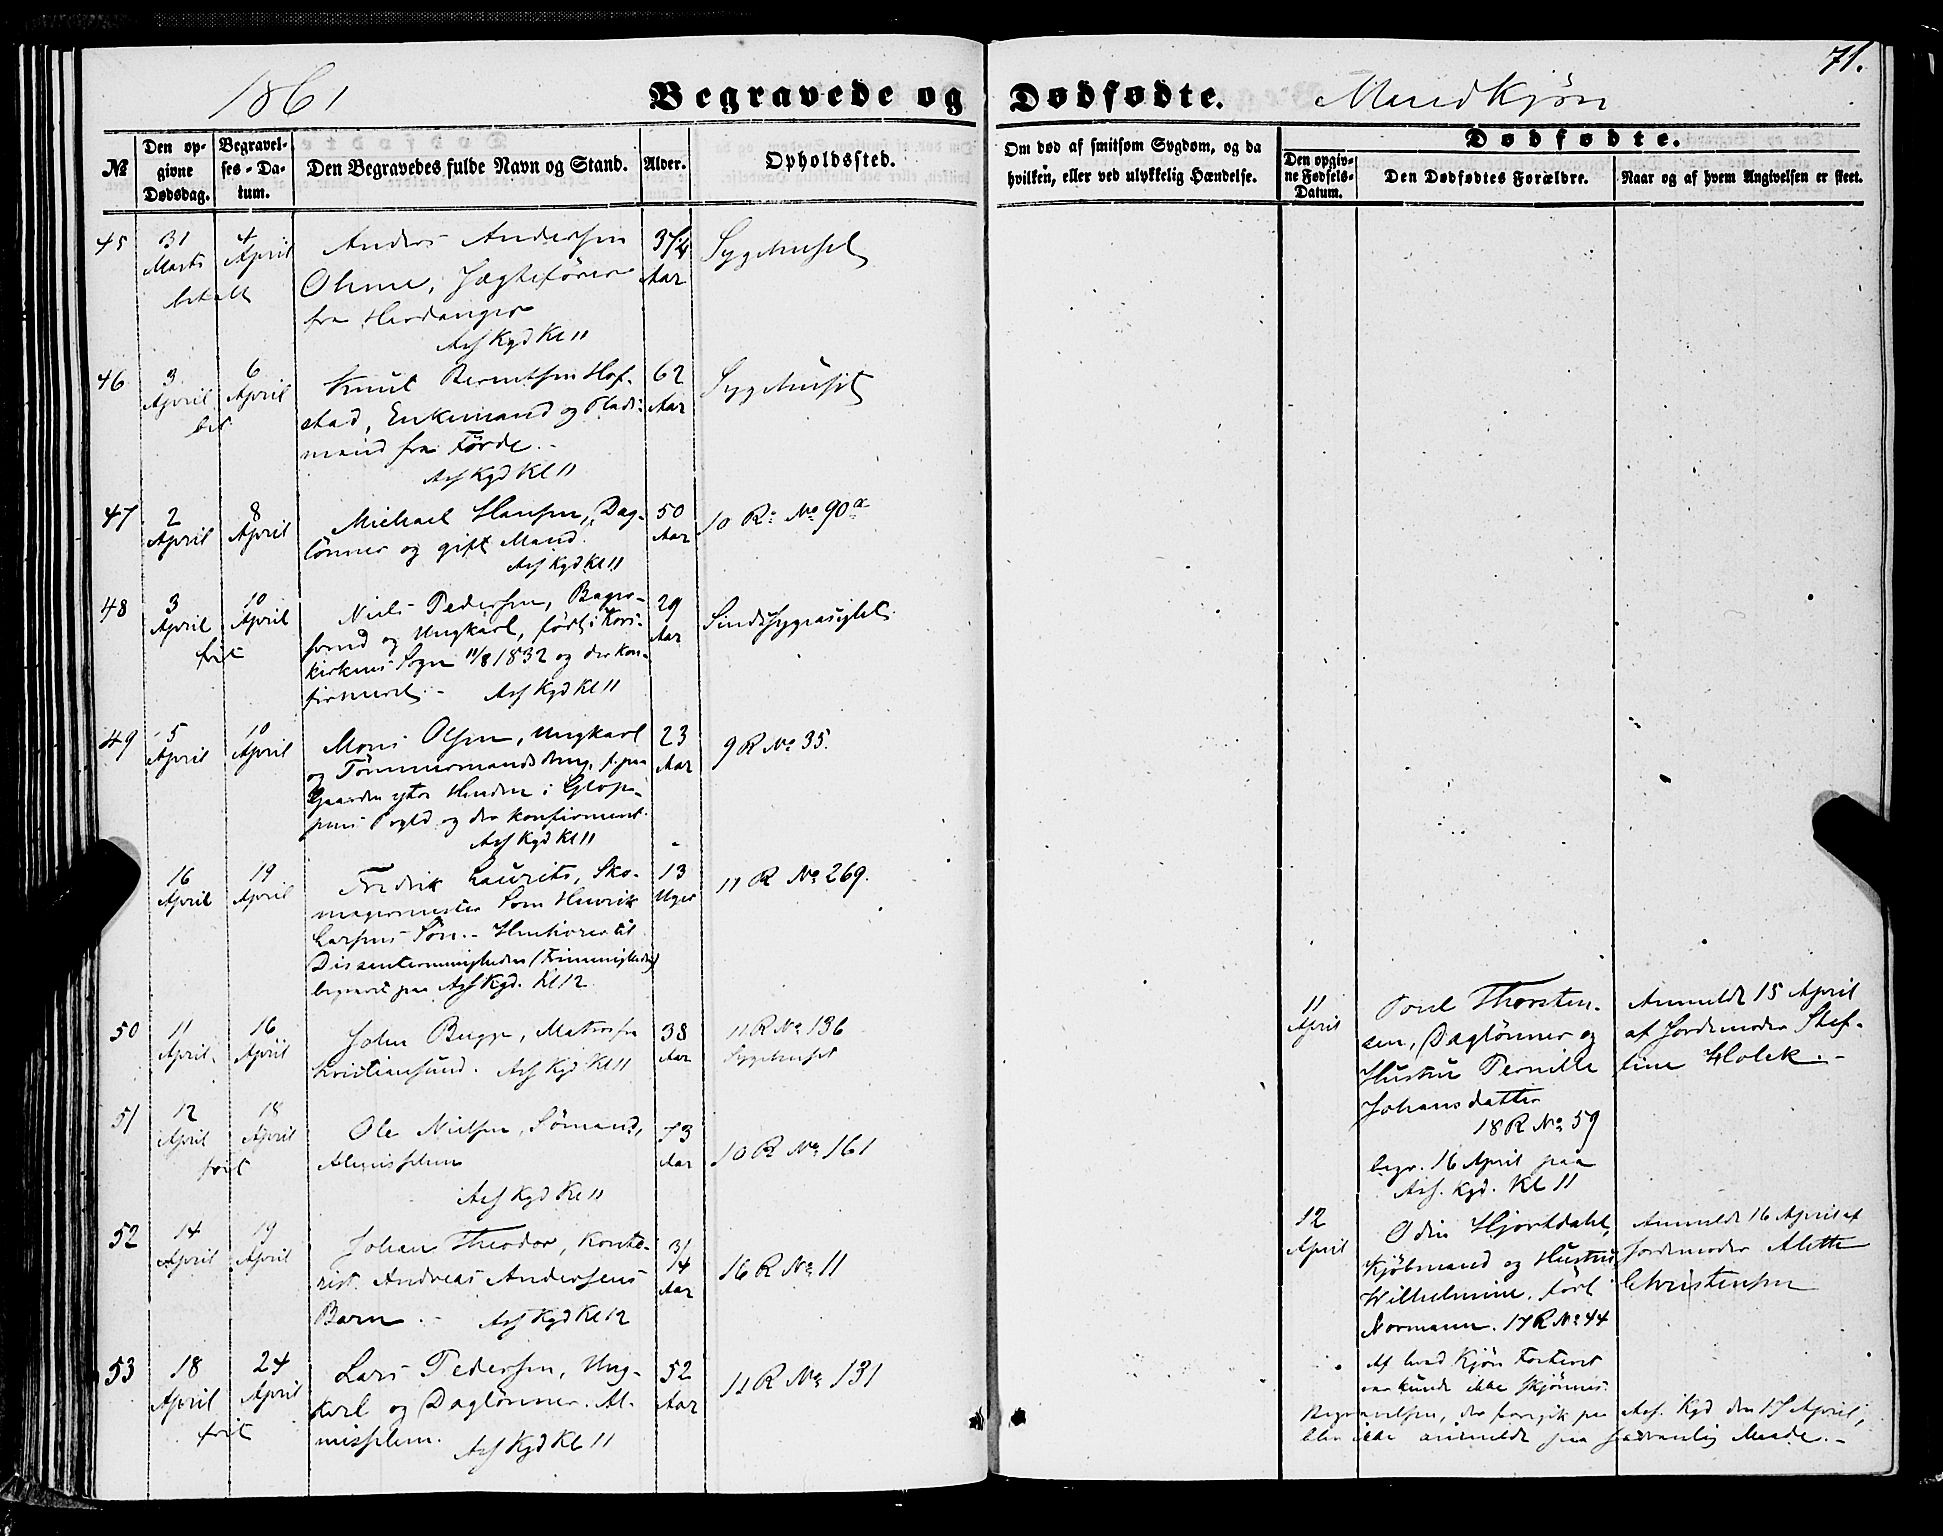 71.
1861 Begravede og Dødfødte. Mandkjøn
№ Den opgivne Dødsdag. Begravelses-Datum. Den Begravedes fulde Navn og Stand. Alder. Opholdssted. Om død af smitsom Sygdom, og da hvilken, eller ved ulykkelig Hændelse. Dødfødte.
Den opgivne Fødsels-Datum. Den Dødfødtes Forældre. Naar og af hvem Angivelsen er skeet.
45 31 4 Anders Andersen 37¼ Sygehuset
Marts April Ohme, Jægtefører Aar
betalt fra Hardanger
Ass Kgd Kl 11
46 3 6 Knud Berntsen Hof- 62 Sygehuset
April April stad, Enkemand og Plads- Aar
bet mand fra Førde.-
Ass Kgd Kl 11
47 2 8 Michael Hansen, Dag- 50 10 R: No 90a
April April lønner og gift Mand. Aar
Ass Kgd Kl 11
48 3 10 Niels Pedersen, Bager- 29 Sindssygeasylet
April April svend og Ungkarl, født i Kors- Aar
frit kirkens Sogn 11/8 1832 og der kon-
firmeret.- Ass Kgd Kl 11
49 5 10 Mons Olsen, Ungkarl 23 9 R No 35.
April April og Tømmermandsdreng, f. paa Aar
Gaarden ytre Henden i Glop-
pens Prgld og der konfirmeret.
Ass Kgd Kl 11
16 19 Fredrik Laurits, Sko- 13 11 R No 269.
April April magermester Henrik Uger
Larsens Søn.- Henhører til
Dissentermenigheden (Frimenigheden)
begravet paa Ass Kgd. Kl 12
50 11 16 John Bugge, Matros fra 38 11 R No 136
April. April Kristiansund. Ass Kgd Kl 11 Aar Sygehuset
51 12 18 Ole Nielsen, Sømand, 73 10 R No 161
April April Almisselem Aar
frit Ass Kgd Kl 11
52 14 19 Johan Theodor, Konto- 3/4 16 R No 11
April April rist Andreas Andersens Aar
Barn.- Ass Kgd Kl 12
53 18 24 Lars Pedersen, Ung- 52 11 R No 131
April April karl og Daglønner. Al- Aar
frit misselem. Ass Kgd Kl 11
11 Poul Thorsten- Anmeldt 15 April
April sen, Daglønner og af Jordemoder Stef-
Hustru Pernille fine Holck.-
Johansdatter
18 R No 59
begr. 16 April paa
Ass. Kgd. Kl 11
12 Odin Hjortdahl, Anmeldt 16 April af
April Kjøbmand og Hustru Jordemoder Alette
Wilhelmine, født Christensen
Normann. 17 R No 44
Af hvad Kjøn Fosteret
var kunde ikke skjønnes.
Begravelsen, der foregik paa Ass. Kgd den 17 April,
blev ikke anmeldt paa sædvanlig Maade.-